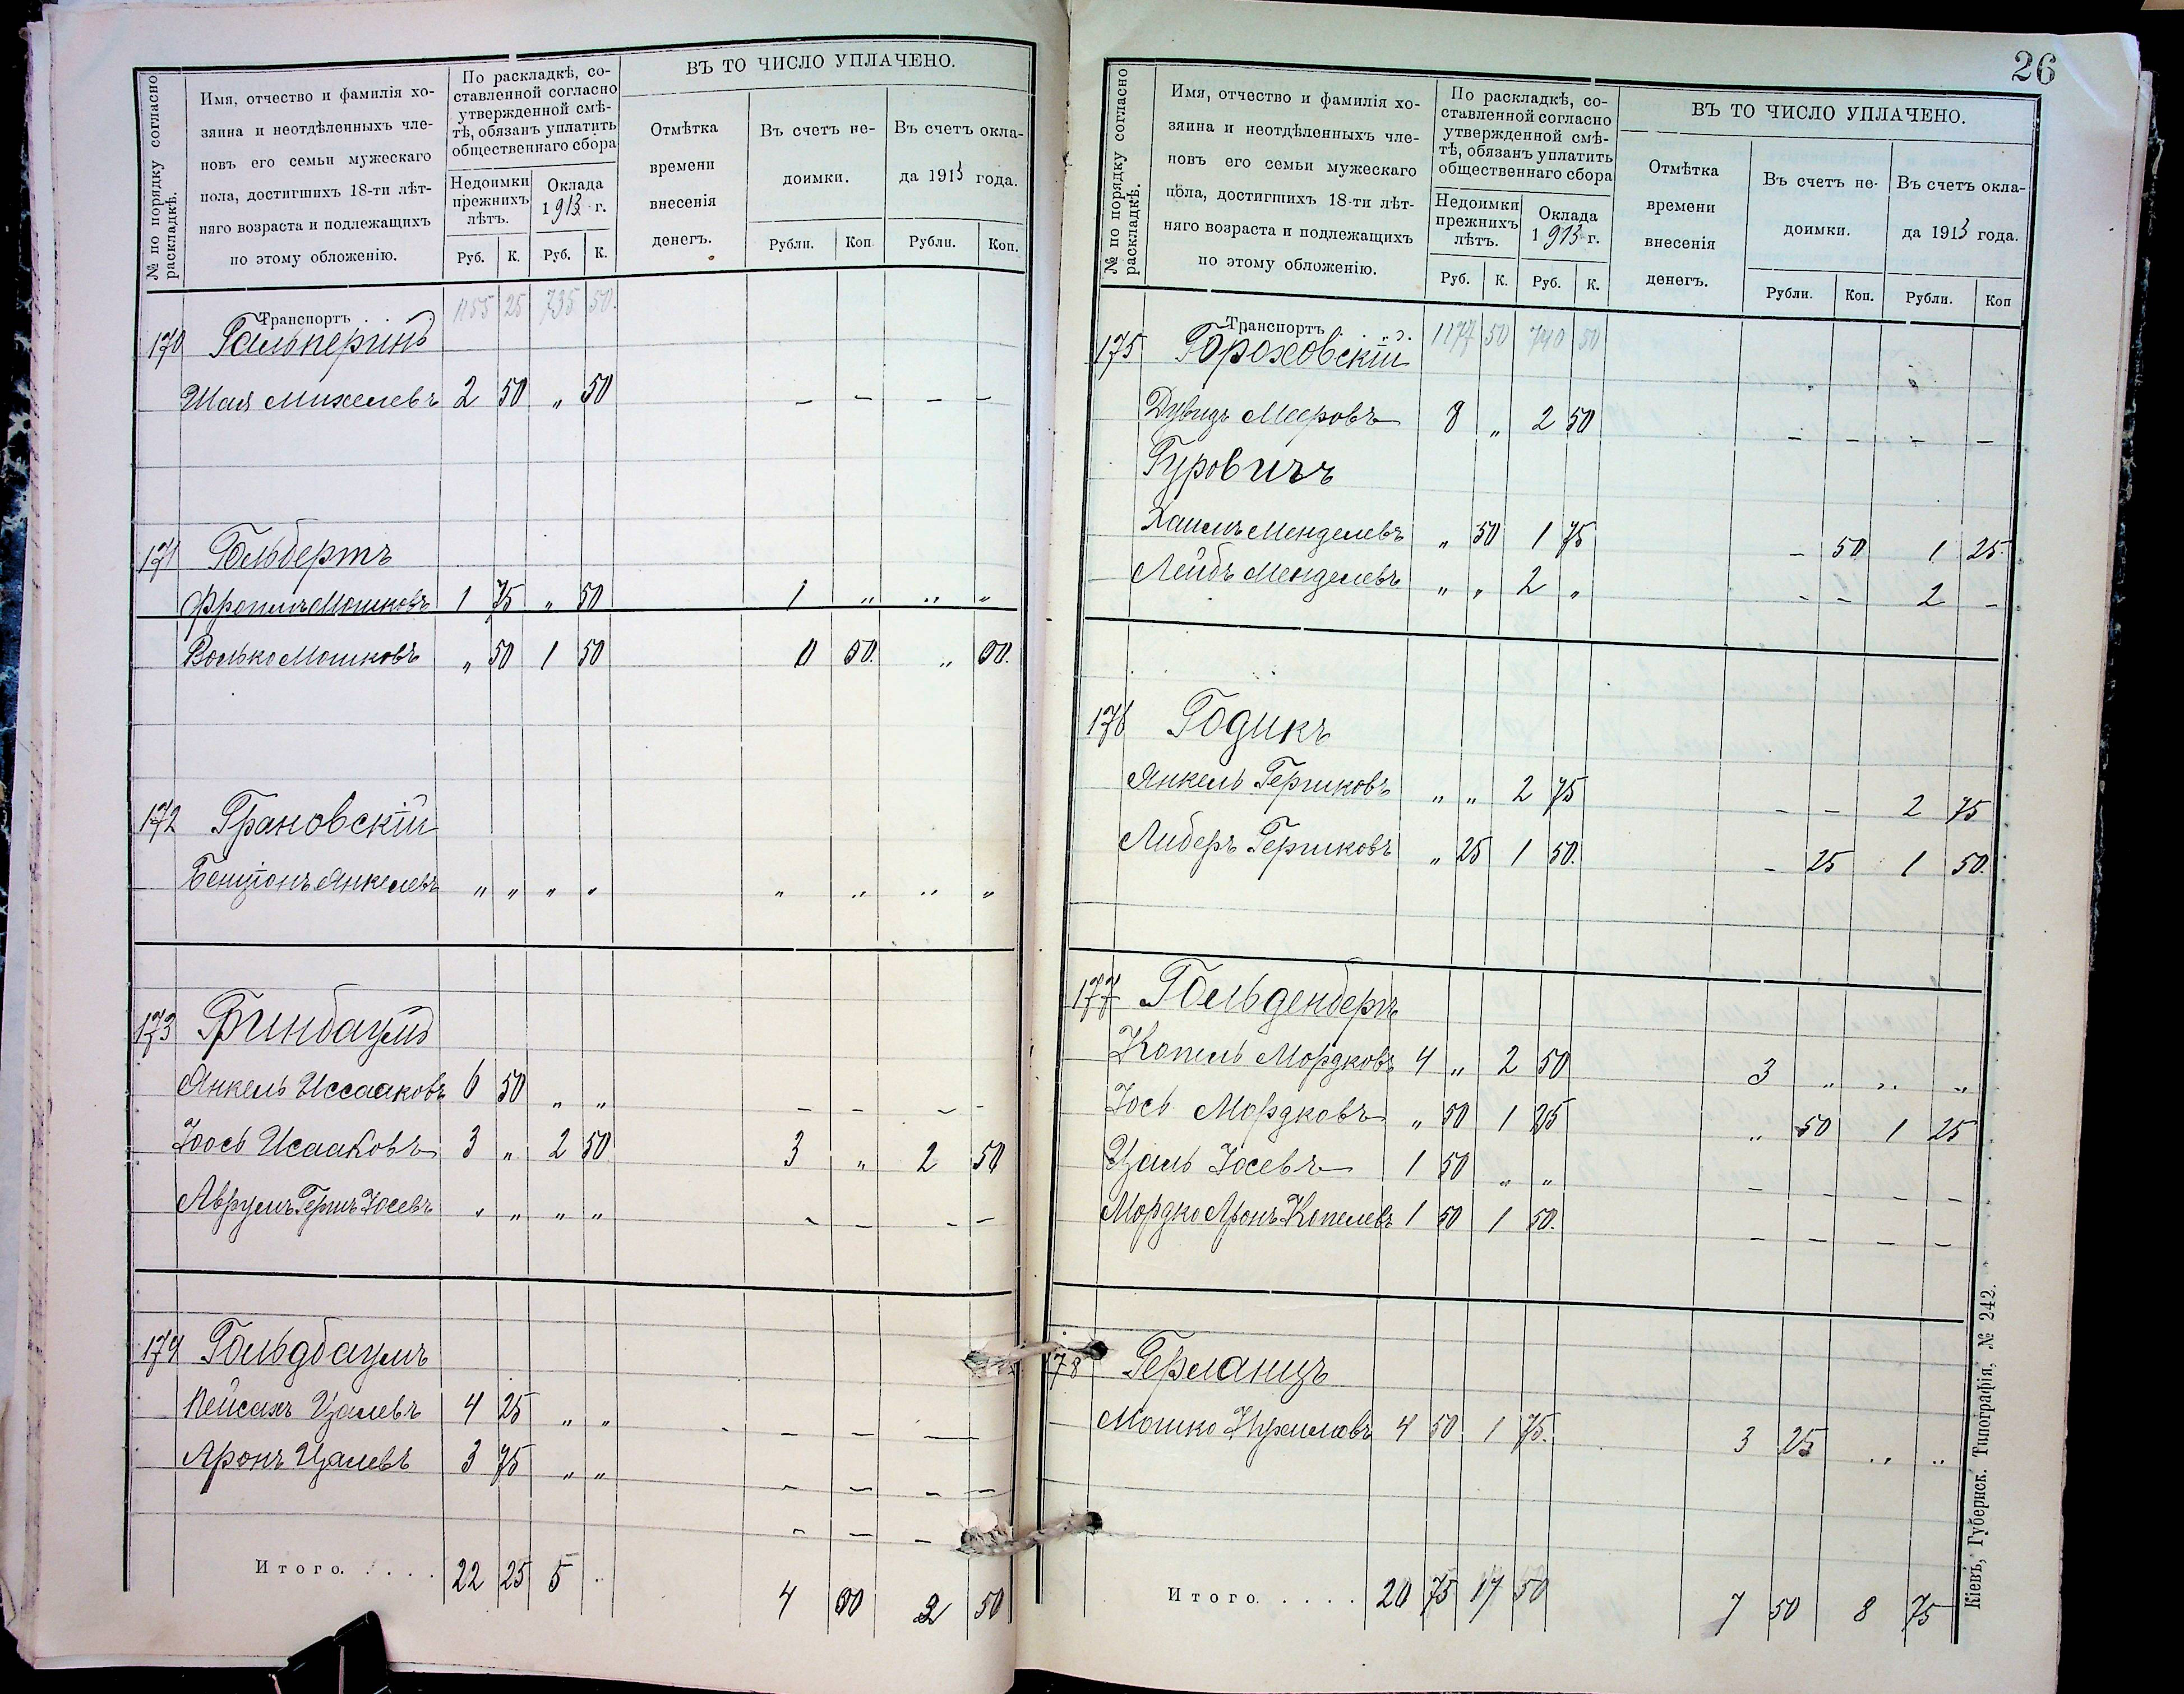 № по порядку согласно раскладкѣ.
Имя, отчество и фамилія хо-
зяина и неотдѣленныхъ чле-
новъ его семьи мужескаго
пола, достигшихъ 18-ти лѣт-
няго возраста и подлежащихъ
по этому обложенію.
По раскладкѣ, со-
ставленной согласно
утвержденной смѣ-
тѣ, обязанъ уплатить
общественнаго сбора
Недоимки прежнихъ лѣтъ.
Оклада 1913 г.
Руб. К. Руб. К.
ВЪ ТО ЧИСЛО УПЛАЧЕНО.
Отмѣтка
времени
внесенія
денегъ.
Въ счетъ не-
доимки.
Въ счетъ окла-
да 1913 года.
Рубли. Коп. Рубли. Коп.
Транспортъ 1155 25 735 50.
170 Гальперинъ
Шая Михелевъ 2 50 „ 50 – – – –
171 Гельбертъ
Фроимъ Мошковъ 1 75 „ 50 1 „ „ „
Волько Мошковъ „ 50 1 50 0 00. „ 00.
172 Грановскій
Бенціонъ Янкелевъ „ „ „ „ „ „ „ „
173 Гринбаумъ
Янкель Иссааковъ 6 50 „ „ – – – –
Іось Исааковъ 3 „ 2 50 3 „ 2 50
Аврумъ Гершъ Іосевъ „ „ „ „ – – – –
174 Гольдбаумъ
Пейсахъ Цалевъ 4 25 „ „ – – —
Аронъ Цалевъ 3 75 „ „ – – – –
– – –
Итого. . . . . 22 25 5 . 4 00 2 50
26
№ по порядку согласно раскладкѣ.
Имя, отчество и фамилія хо-
зяина и неотдѣленныхъ чле-
новъ его семьи мужескаго
пола, достигшихъ 18-ти лѣт-
няго возраста и подлежащихъ
по этому обложенію.
По раскладкѣ, со-
ставленной согласно
утвержденной смѣ-
тѣ, обязанъ уплатить
общественнаго сбора
Недоимки прежнихъ лѣтъ.
Оклада 1913 г.
Руб. К. Руб. К.
ВЪ ТО ЧИСЛО УПЛАЧЕНО.
Отмѣтка
времени
внесенія
денегъ.
Въ счетъ не-
доимки.
Въ счетъ окла-
да 1913 года.
Рубли. Коп. Рубли. Коп
Транспортъ 1177 50 740 50
175 Гороховскій
Дувидъ Мееровъ 8 „ 2 50 – – – –
Гуровичъ
Хаимъ Менделевъ „ 50 1 75 – 50 1 25.
Лейбъ Менделевъ „ „ 2 „ – – 2 –
176 Годикъ
Янкель Гершковъ „ „ 2 75 – – 2 75
Либеръ Гершковъ „ 25 1 50. – 25 1 50.
177 Гольденбергъ
Копель Мордковъ 4 „ 2 50 3 „ „ „
Іось Мордковъ „ 50 1 25 „ 50 1 25
Цаль Іосевъ 1 50 „ „ – – – –
Мордко Аронъ Копелевъ 1 50 1 50. – – – –
178 Герланцъ
Мошко 4 50 1 75. 3 25 „ „
Итого. . . . . 20 75 17 50 7 50 8 75
Кіевъ, Губернск. Типографія, № 242.